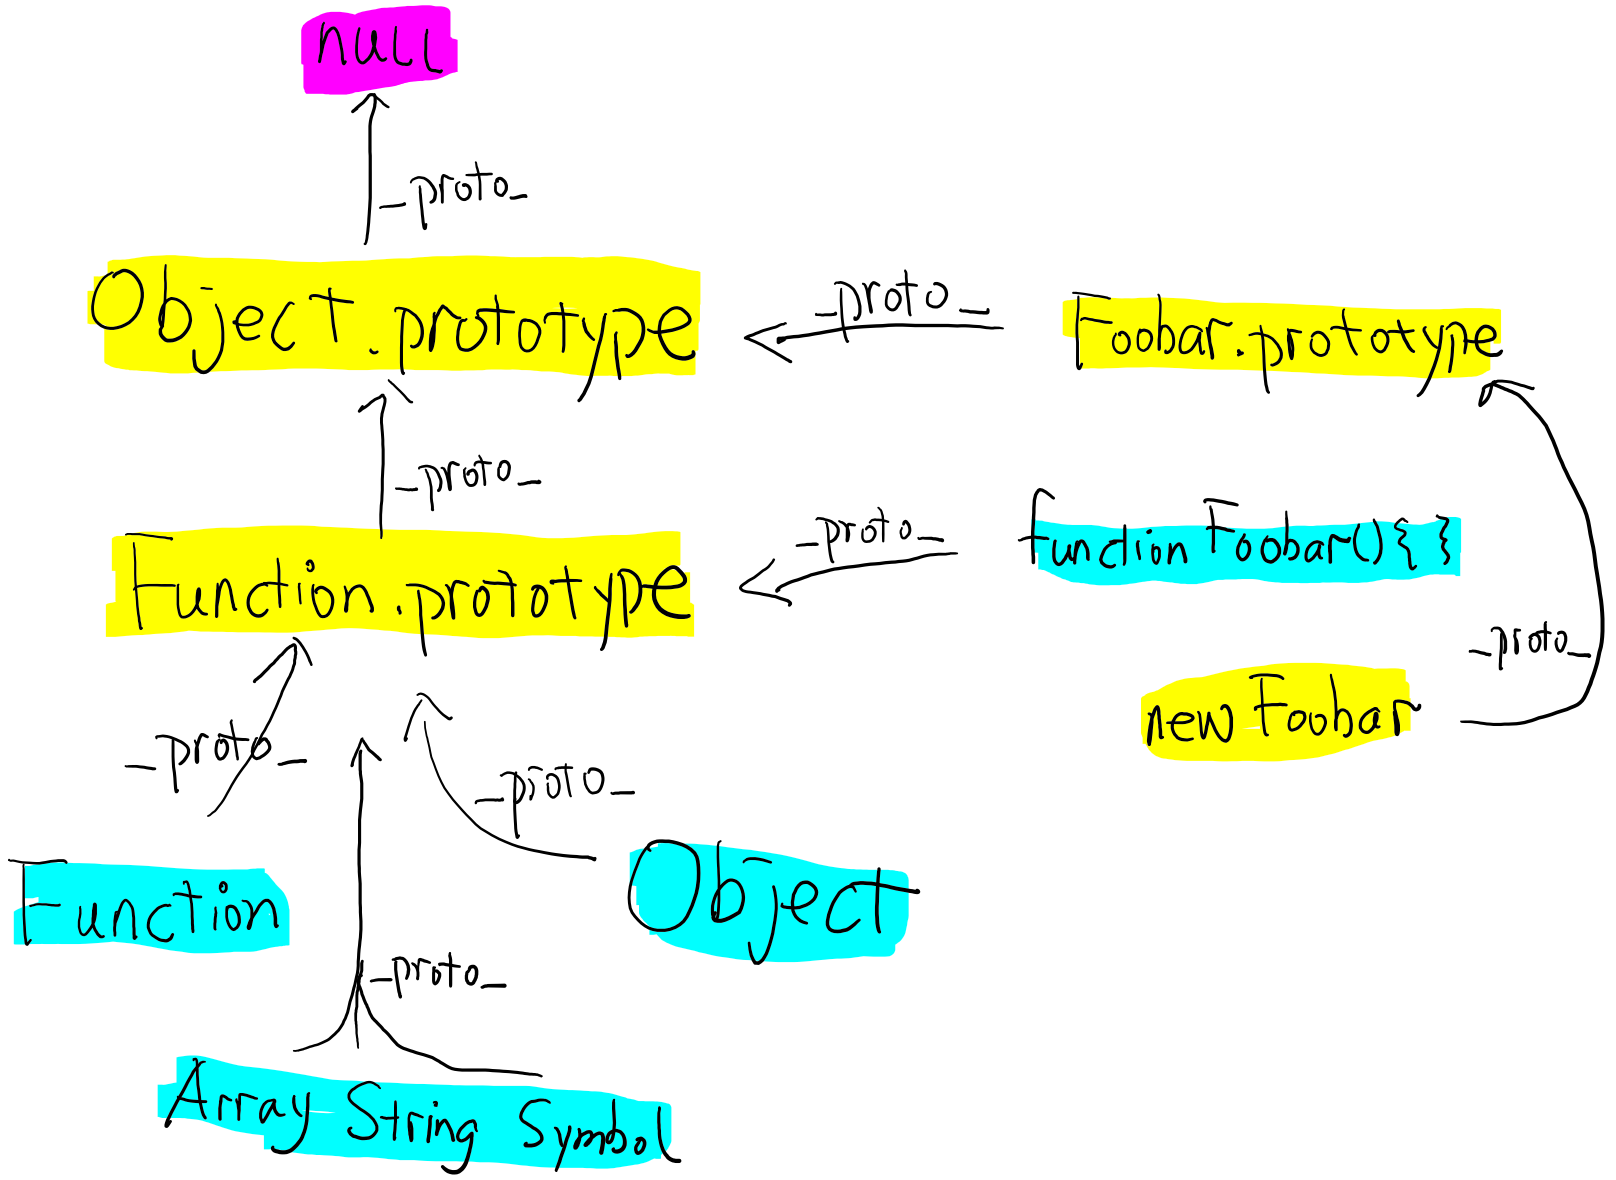 null
_proto_
Object.prototype
_proto_
Foobar.prototype
_proto_
_proto_
function Foobar(){ }
Function.prototype
_proto_
new Foobar
_proto_
_proto_
Function
Object
_proto_
Array String Symbol